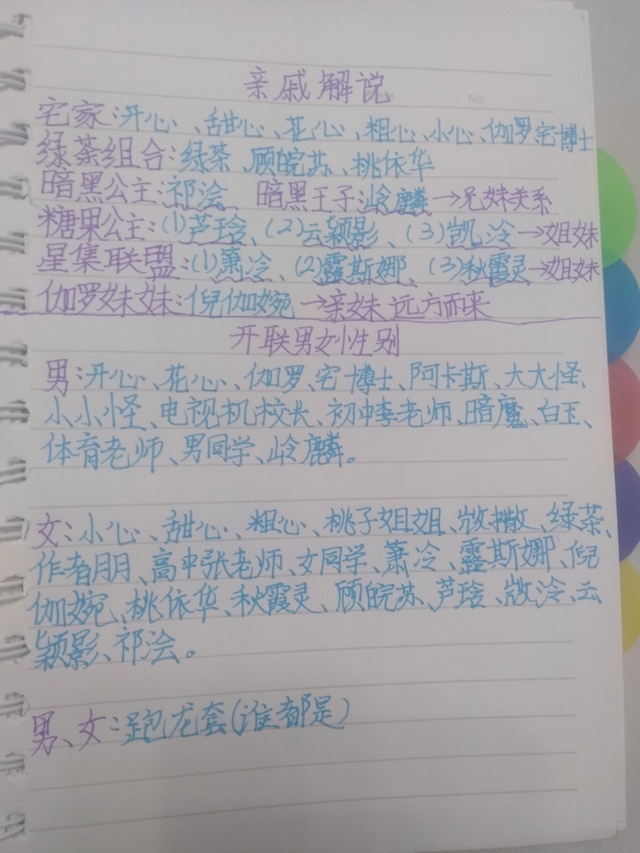 亲戚解说
No.
宅家：开心、甜心、花心、粗心、小心、伽罗、宅博士
绿茶组合：绿茶、顾皖苏、桃依华
暗黑公主：祁浍 暗黑王子：岭麟→兄妹关系
糖果公主：(1)芦玲、(2)云颖影、(3)凯泠→姐妹
星集联盟：(1)萧泠、(2)露斯娜、(3)秋霞灵→姐妹
伽罗妹妹：倪伽婉→亲妹 远方而来
开联男女性别
男：开心、花心、伽罗、宅博士、阿卡斯、大大怪、
小小怪、电视机校长、初中李老师、暗魔、白玉、
体育老师、男同学、岭麟。
女：小心、甜心、粗心、桃子姐姐、撒、绿茶、
作者月月、高中张老师、女同学、萧冷、露斯娜、倪
伽婉、桃依华、秋霞灵、顾皖苏、芦玲、泠、云
颖影、祁浍。
男、女：跑龙套(谁都是)